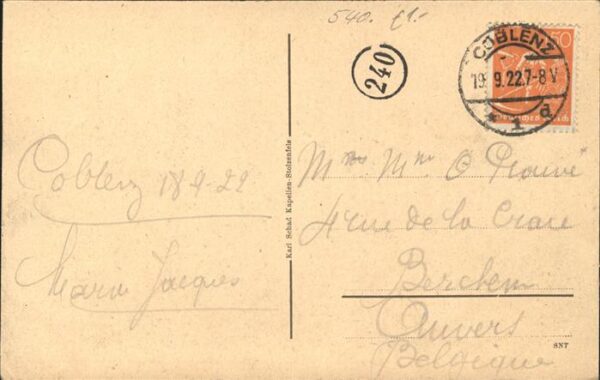 540. £1.-
240
COBLENZ
19. 9. 22. 7-8 V
* 1 d
50
Deutsches Reich
Coblenz 18 9-22
Maria Jacques
Karl Schad Kapellen-Stolzenfels
Mme O
4 rue de la
Berchem
Anvers
Belgique
SNT